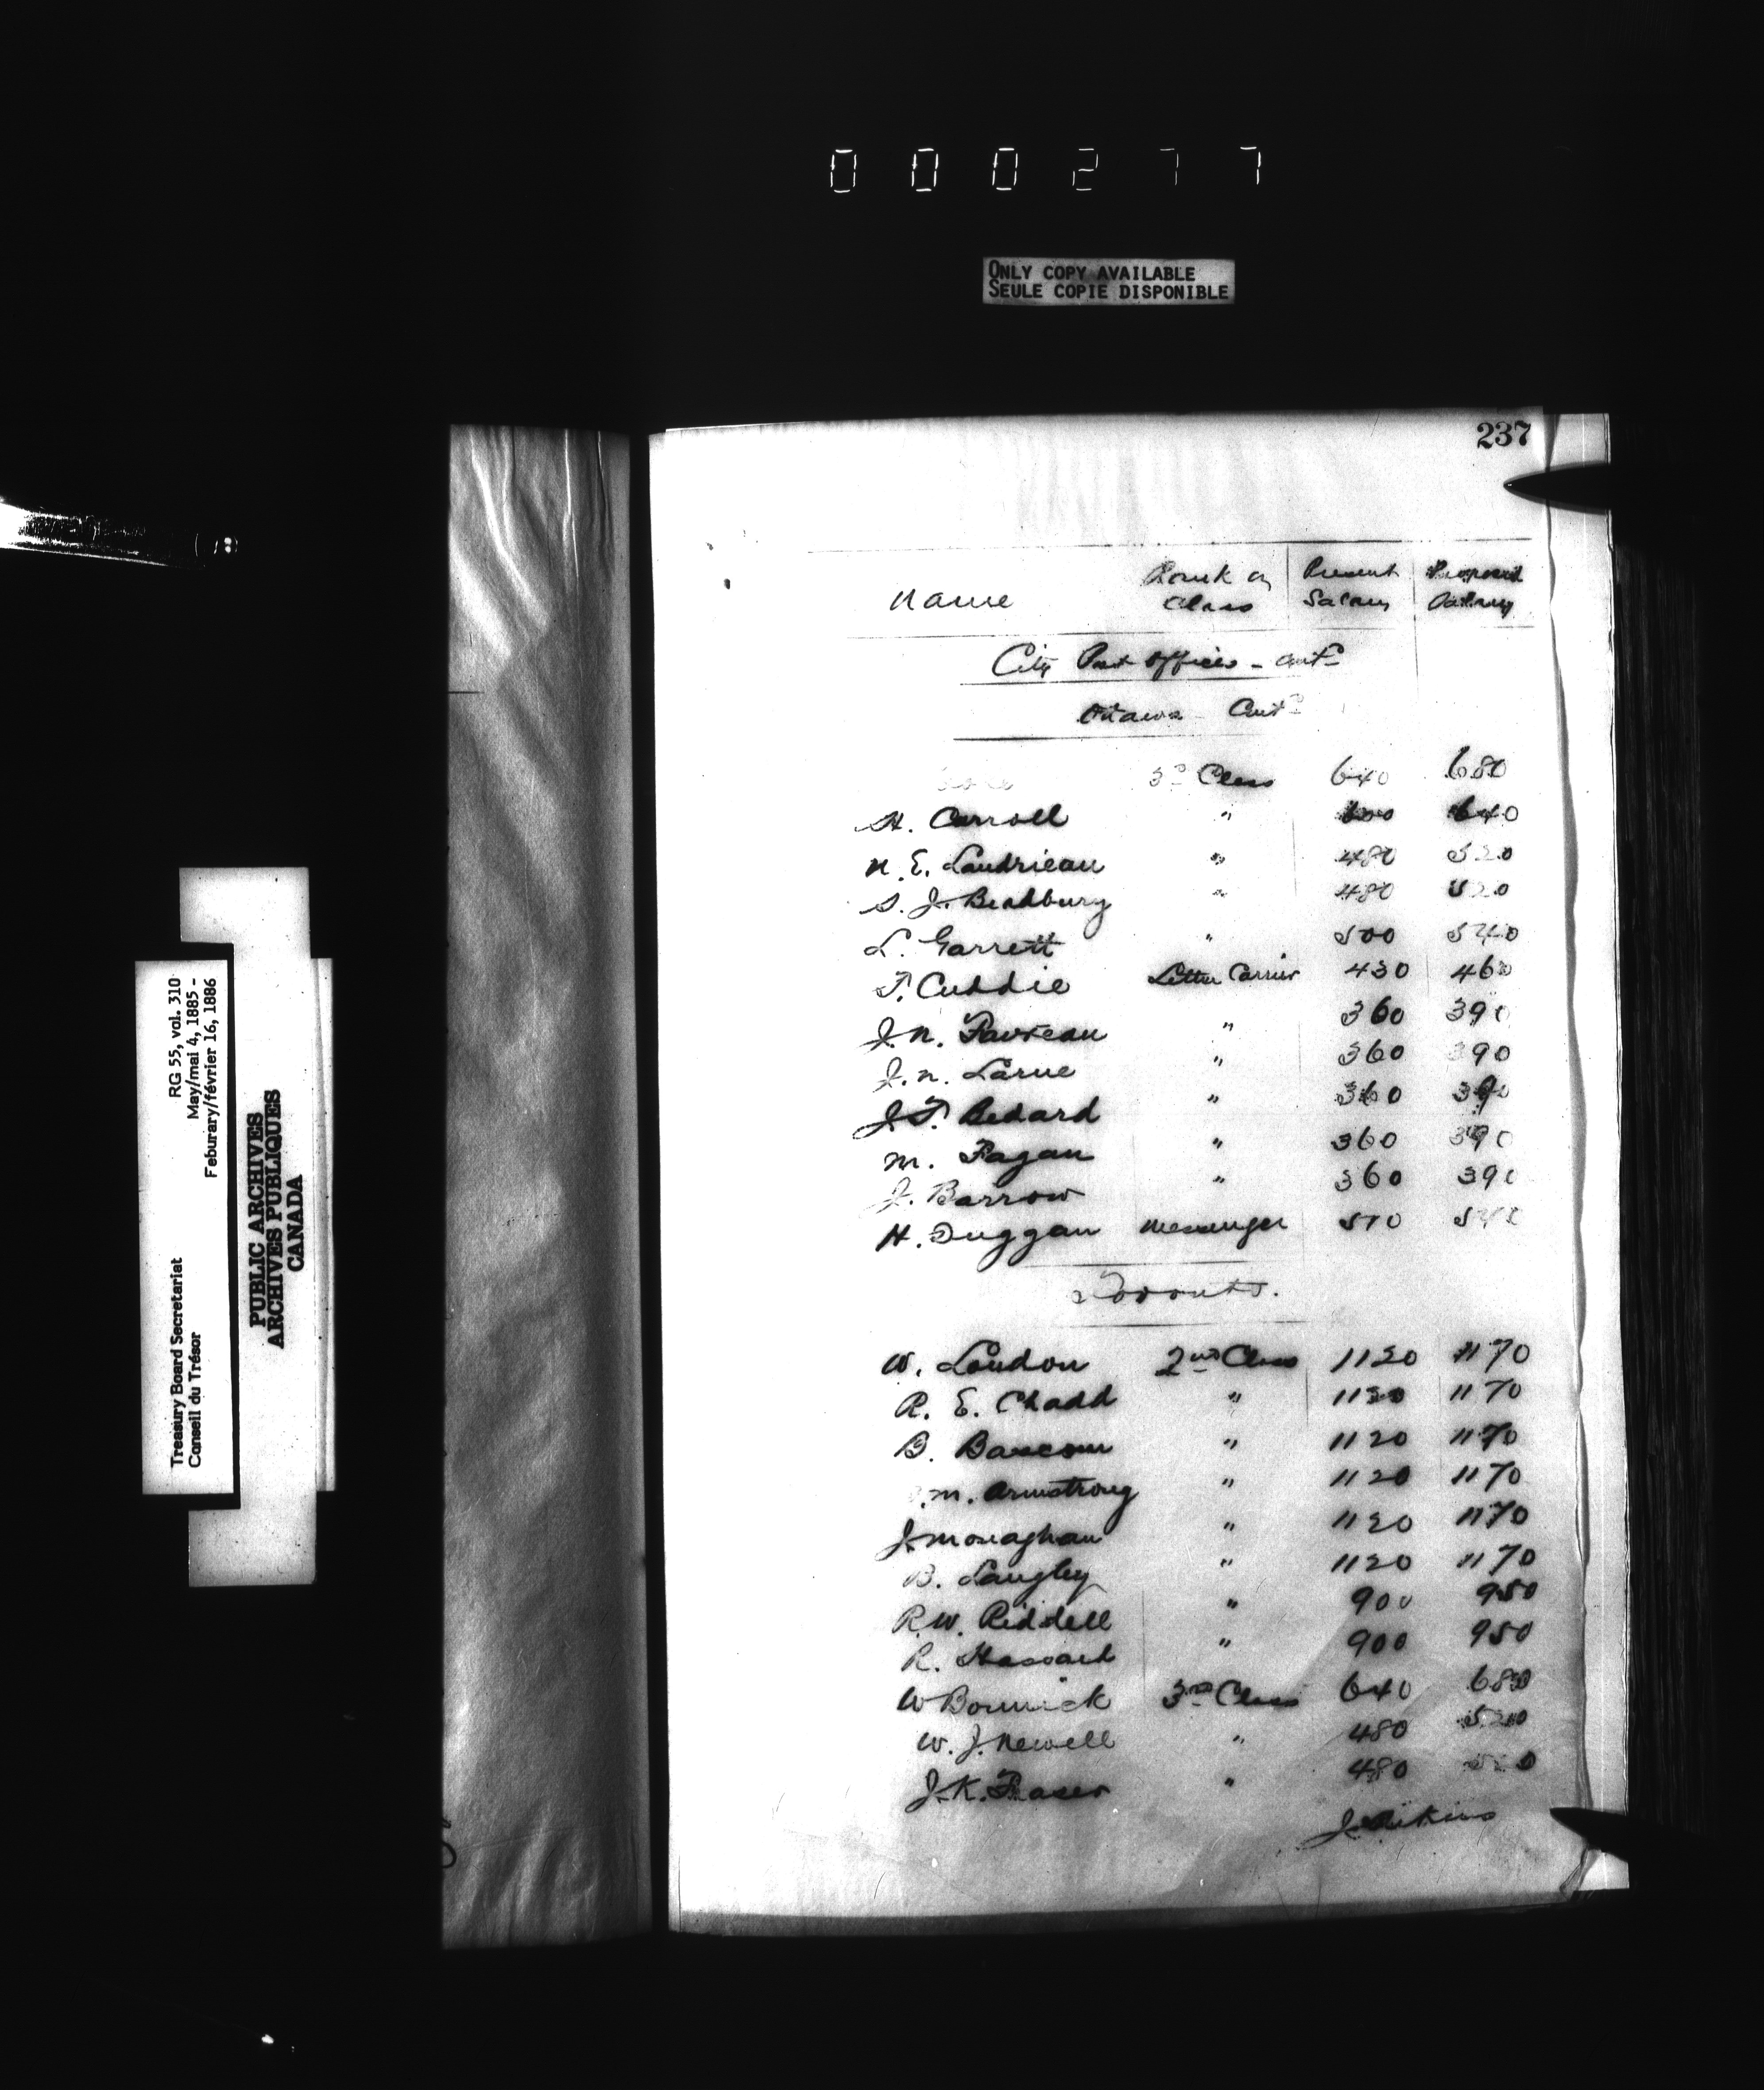 000277
ONLY COPY AVAILABLE
SEULE COPIE DISPONIBLE
RG 55, vol. 310
May/mai 4, 1885 -
Feburary/février 16, 1886
Treasury Board Secretariat
Conseil du Trésor
PUBLIC ARCHIVES
ARCHIVES PUBLIQUES
CANADA
237
Name Rank or Class Present Salary Proposed Salary
City Post Offices - Ont
Ottawa Ont
3d Class 640 680
H. Carroll " 600 640
N. E. Laudrieau " 480 520
S. J. Bradbury " 480 520
L. Garrett " 500 540
T. Cuddie Letter Carrier 430 460
J. N. Favreau " 360 390
J. N. Larue " 360 390
J. T. Bedard " 360 390
M. Fagan " 360 390
J. Barrow " 360 390
H. Duggan Messenger 510
Toronto.
W. Loudon 2nd Class 1120 1170
R. E. Chadd " 1120 1170
B. " 1120 1170
M. Armstrong " 1120 1170
J. Monaghan " 1120 1170
B. Langley " 1120 1170
R. W. Riddell " 900 950
R. Hassard " 900 950
W 3rd Class 640 680
W. J. Newell " 480 520
J. K. Fraser " 480 520
J. Aikins